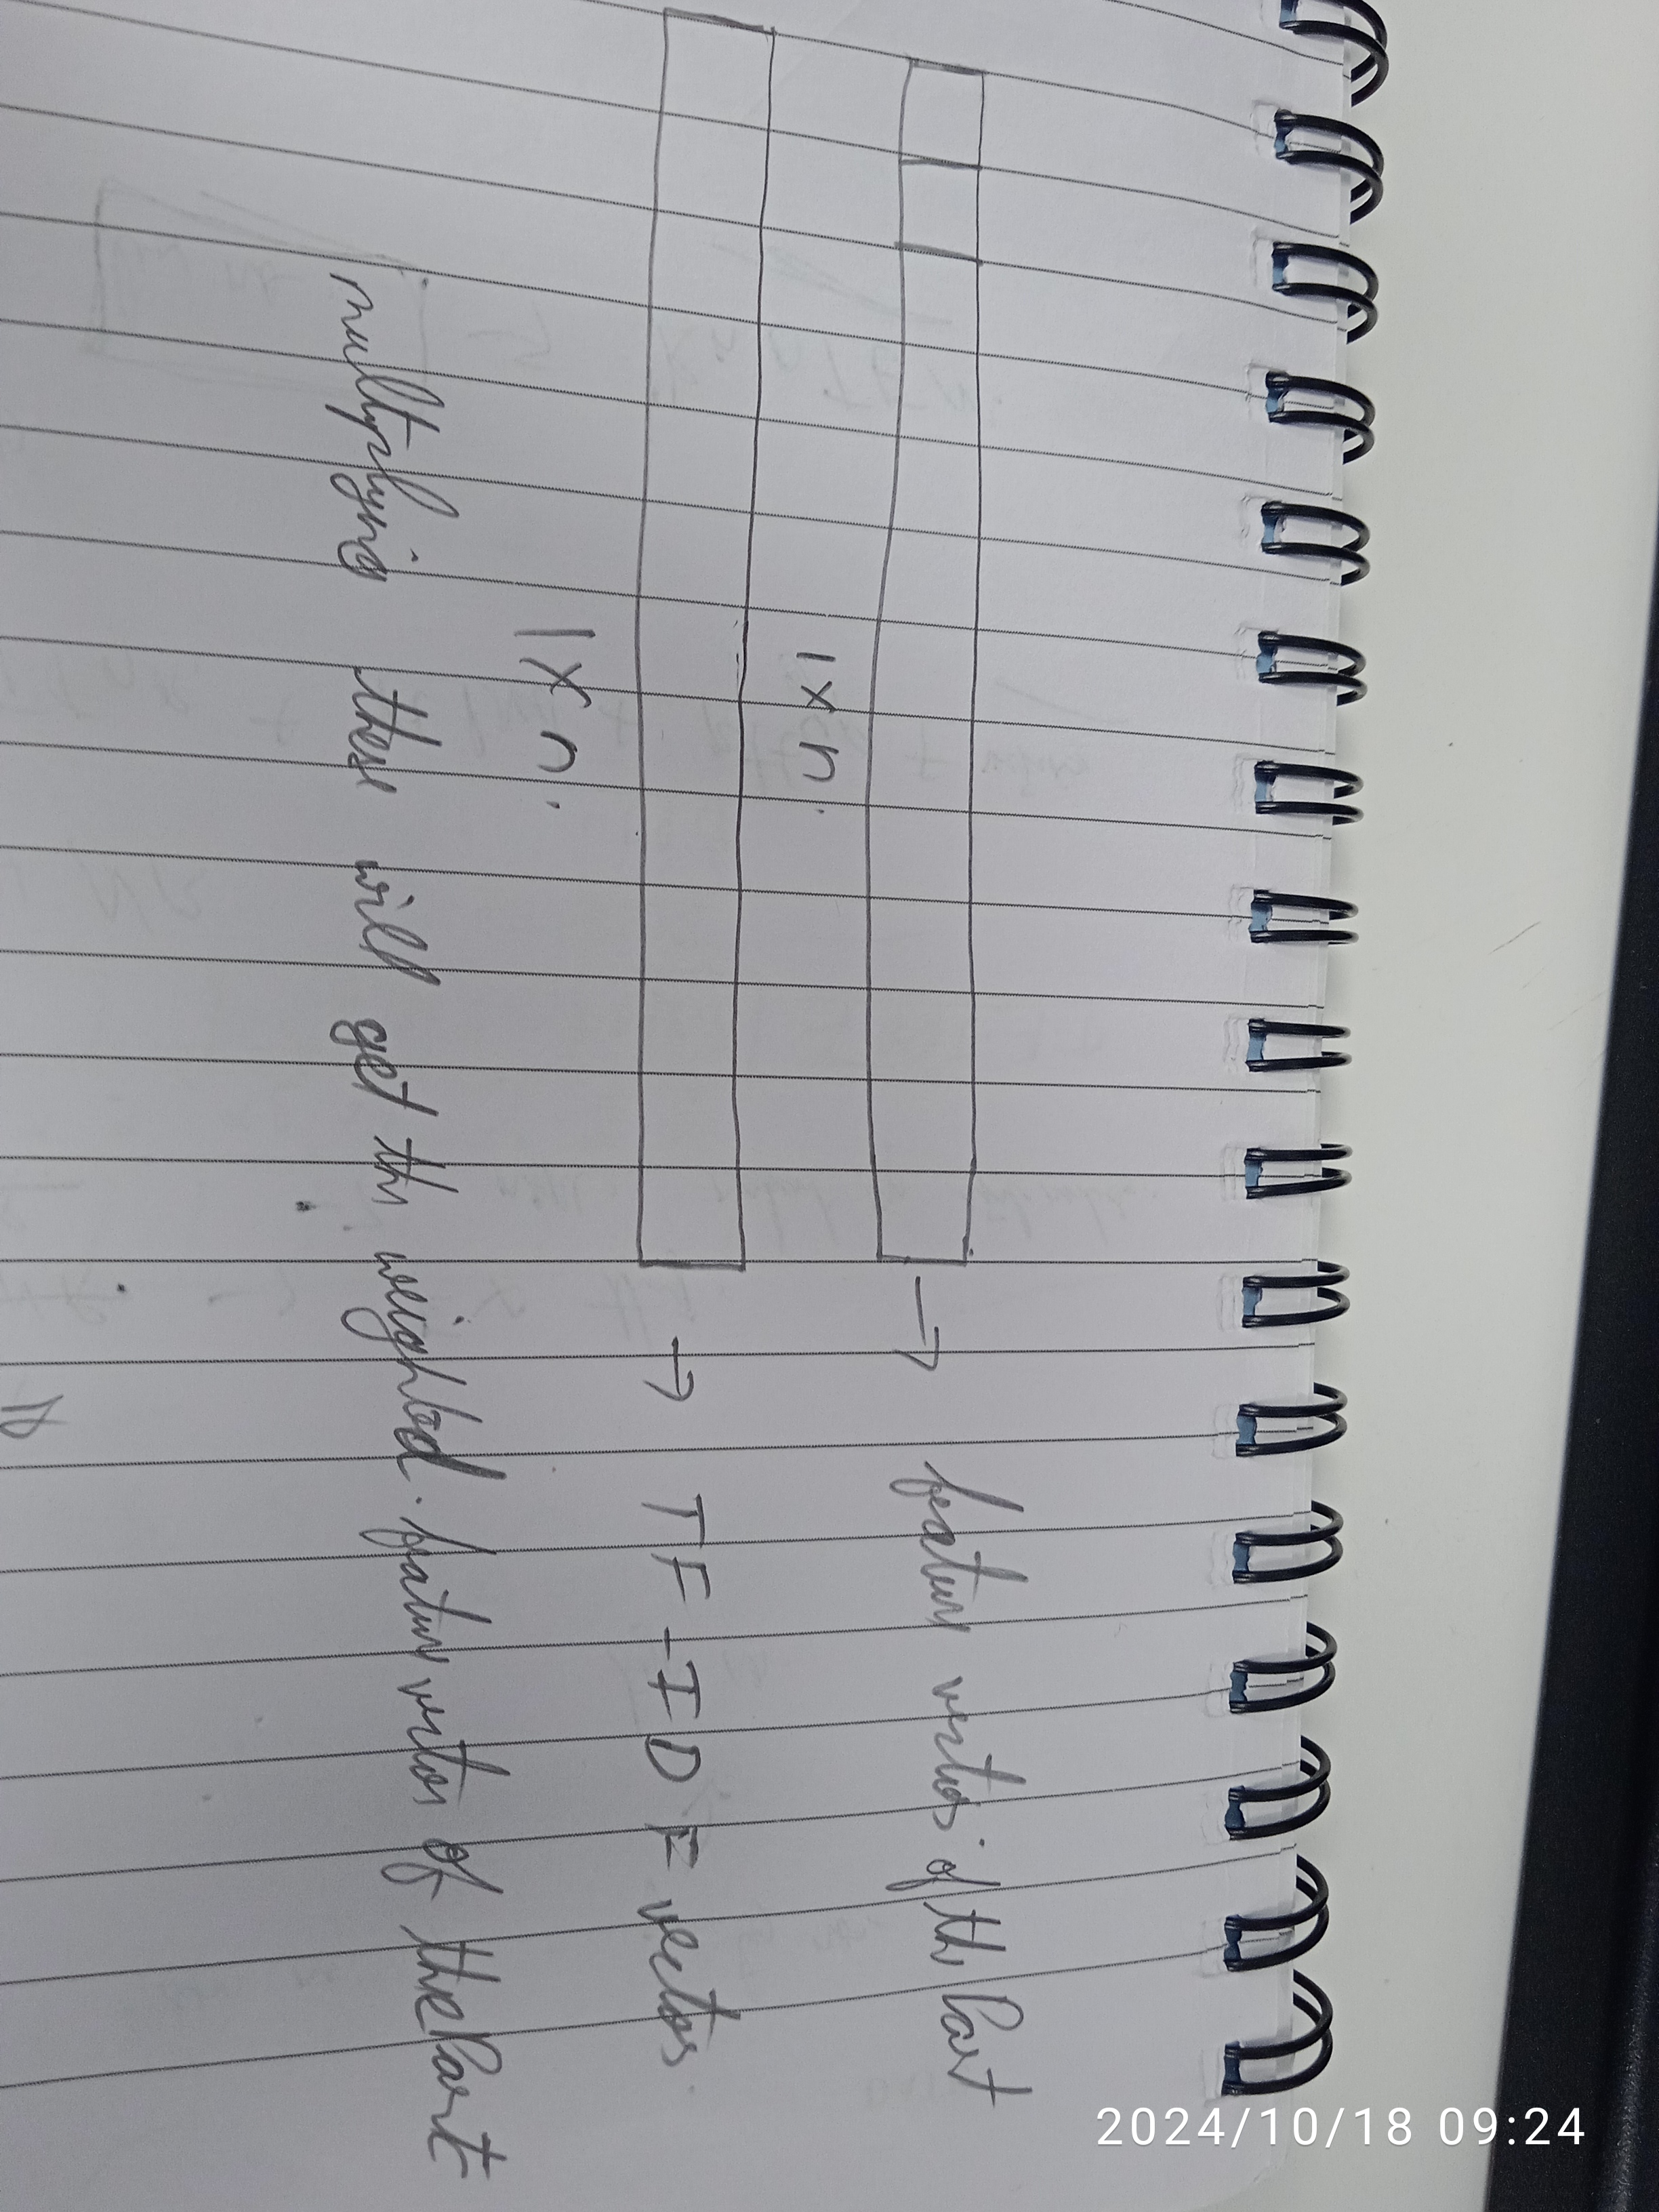 → feature vector of the Part
1 x n.
→ TF-IDF vector
1 x n.
multiplying these will get the weighted feature vector of the Part
2024/10/18 09:24